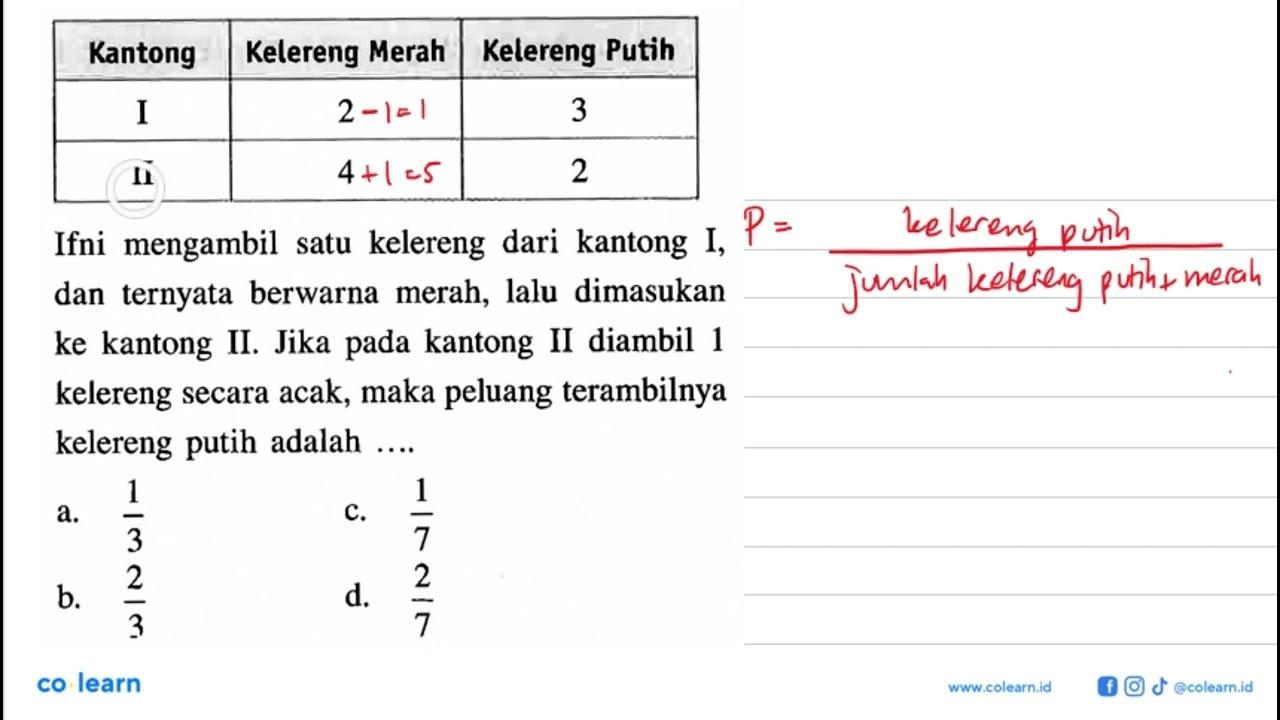 Kantong Kelereng Merah Kelereng Putih
I 2 - 1 = 1 3
II 4 + 1 = 5 2
Ifni mengambil satu kelereng dari kantong I,
dan ternyata berwarna merah, lalu dimasukan
ke kantong II. Jika pada kantong II diambil 1
kelereng secara acak, maka peluang terambilnya
kelereng putih adalah ....
a. 1/3 c. 1/7
b. 2/3 d. 2/7
P = kelereng putih
jumlah kelereng putih + merah
co learn
www.colearn.id @colearn.id